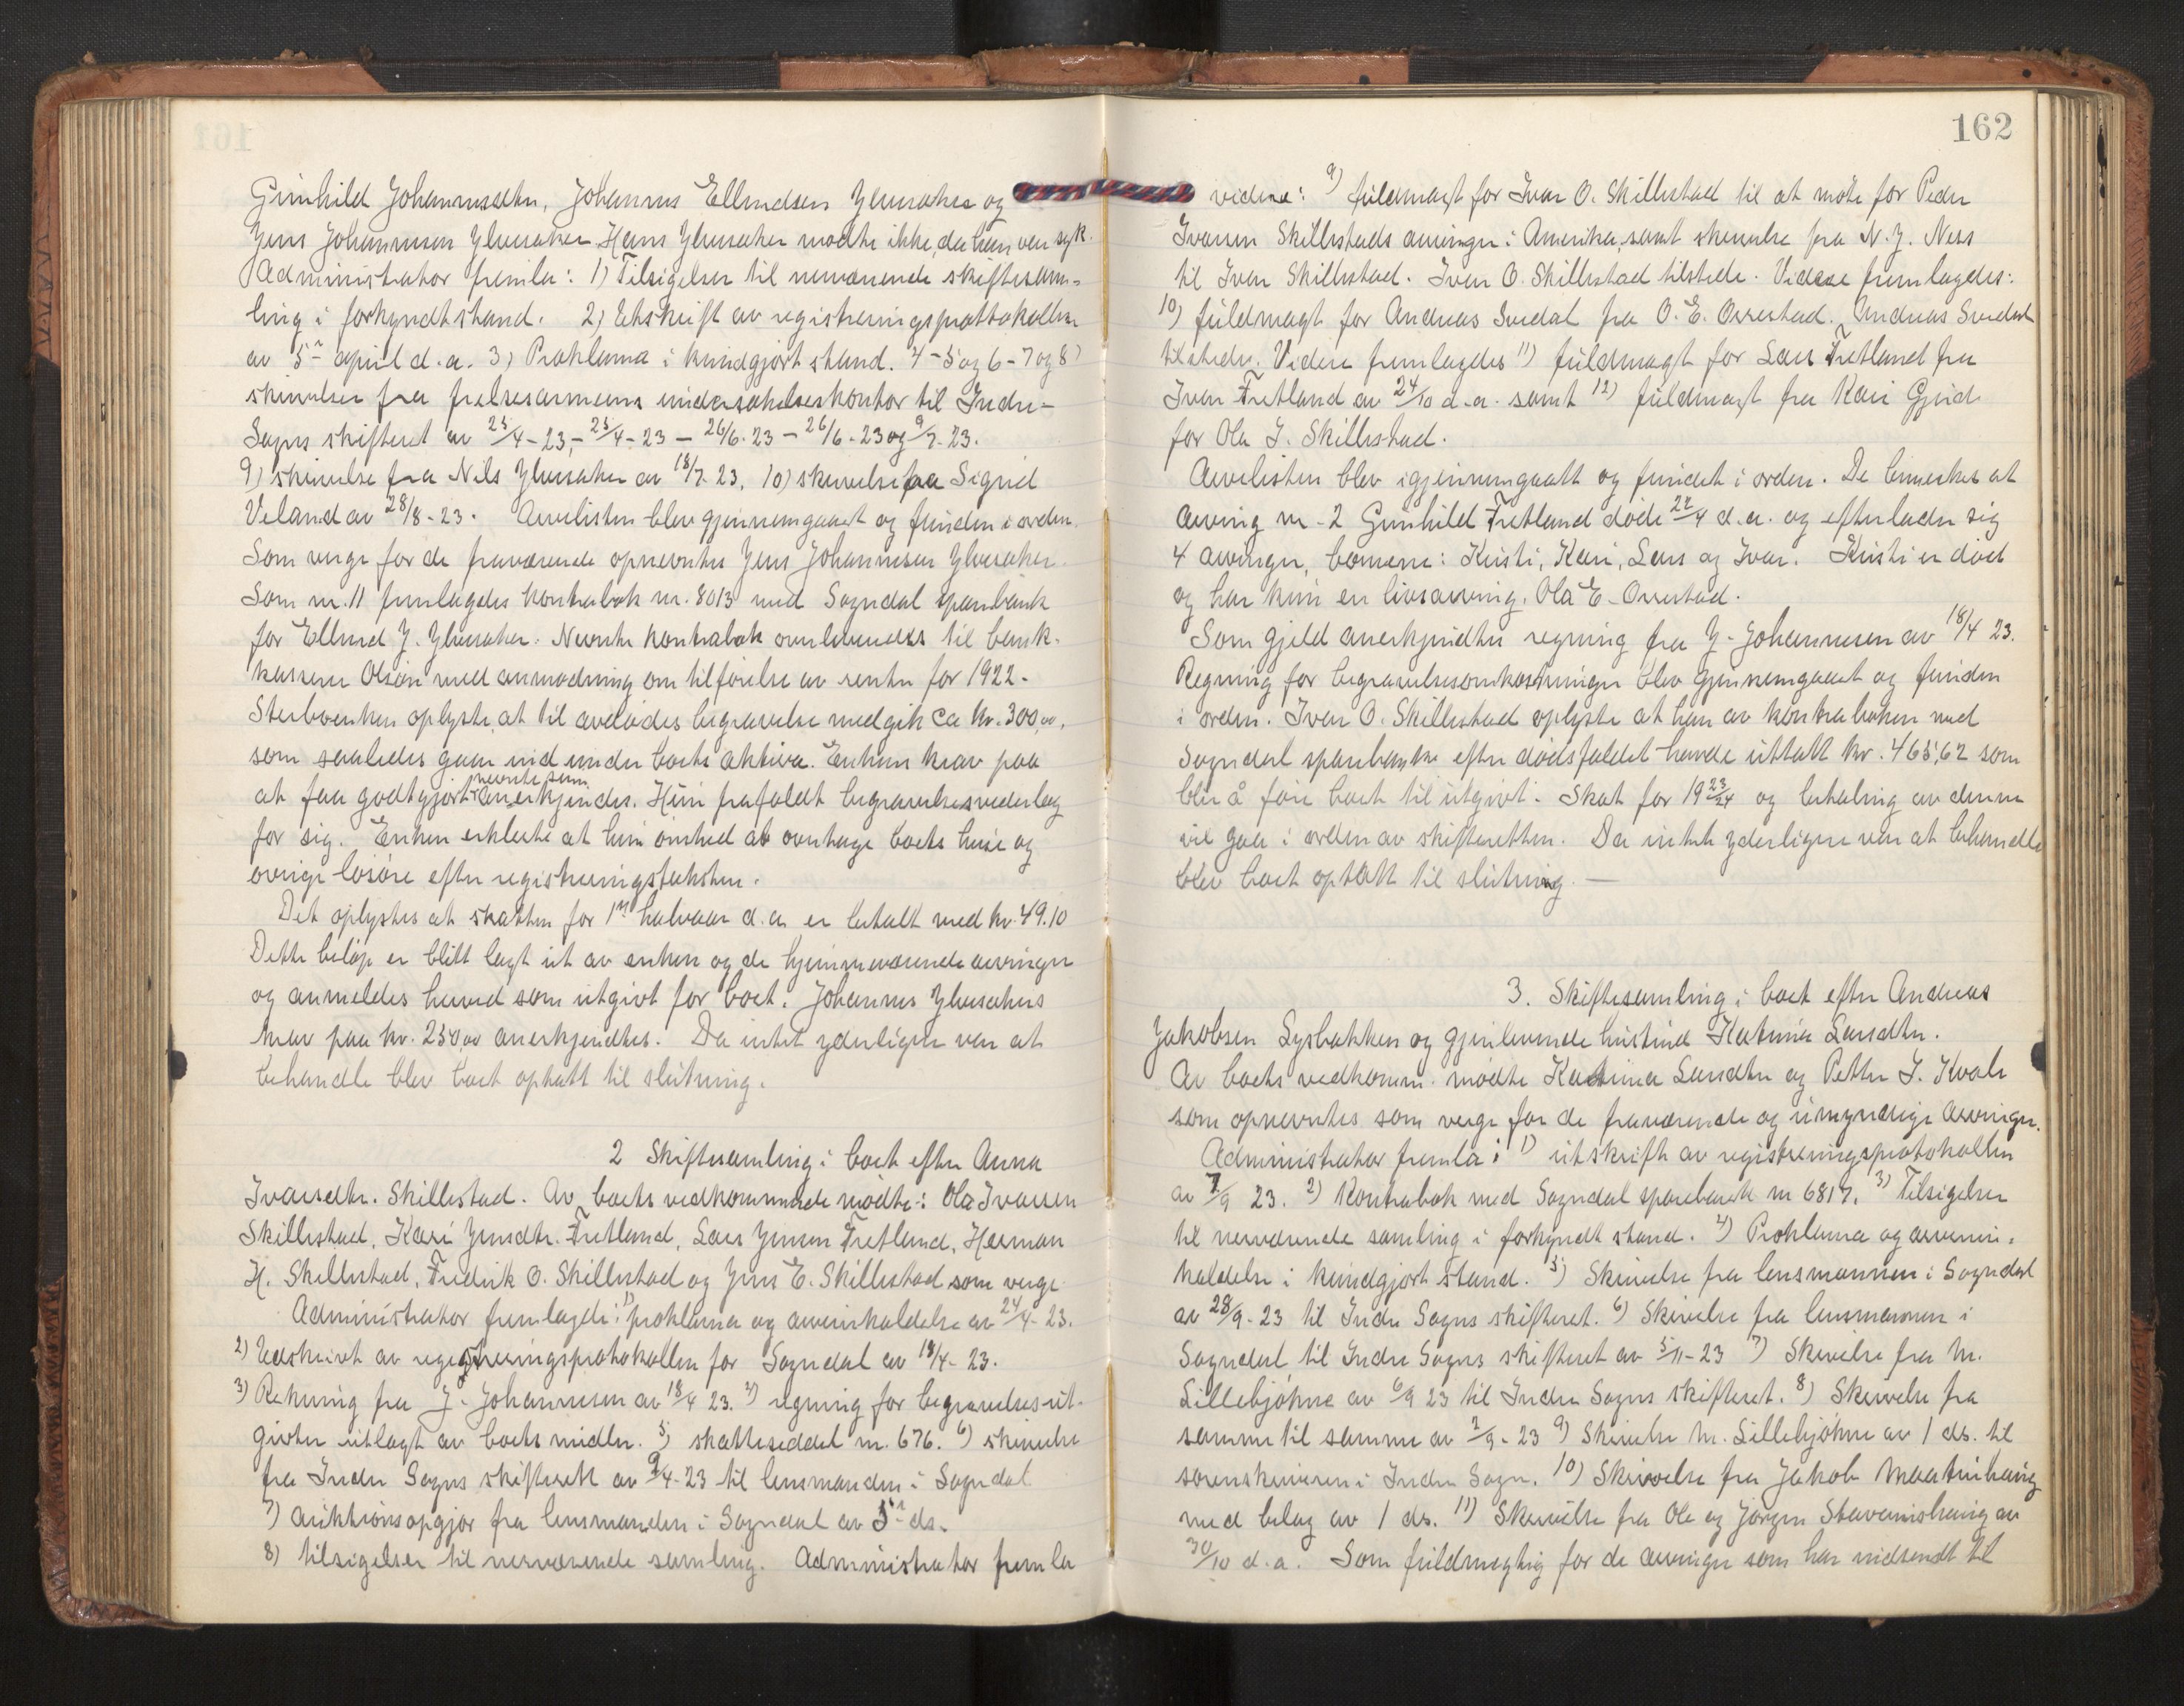 Gunhild Johannesdtr, Johannes Ellendsen Ylvisaker og
Jens Johannesen Ylvisaker. Hans Ylvisaker mødte ikke, da han var syk.
Administrator fremla: 1) Tilsigelser til nerværende skiftesam-
ling i forkyndt stand. 2) Utskrift av registreringsprottokollen
av 5te april d.a. 3) Proklama i kundgjort stand. 4-5 og 6-7 og 8)
skrivelser fra frelsesarmeens undersøkelseskontor til Indre-
Sogns skifteret av 25/4-23,- 25/4-23 - 26/6.23 - 26/6-23 og 9/7-23.
9) skrivelse fra Nils Ylvisaker av 18/7.23, 10) skrivelse fra Sigrid
Veland av 28/8-23. Arvelisten blev gjennemgaaet og funden i orden.
Som verge for de fraværende opnevntes Jens Johannesen Ylvisaker.
Som nr. 11 fremlagdes kontrabok nr. 8013 med Sogndal sparebank
for Ellend J. Ylvisaker. Nevnte kontrabok overleveredes til bank-
kasserer Olsøn med anmodning om tilførelse av renter for 1922.
Sterboenken oplyste, at til avdødes begravelse medgik ca kr. 300,00,
som saaledes gaar ind under boets aktiva. Enkens krav paa
at faa godtgjort nevnte sum anerkjendes. Hun frafaldt begravelsesvederlag
for sig. Enken erklærte at hun ønsked at overtage boets huse og
øvrige løsøre efter registreringstaksten.
Det oplystes at skatten for 1ste halvaar d.a. er betalt med kr. 49.10
Dette beløp er blitt lagt ut av enken og de hjemmeværende arvinger
og anmeldes herved som utgivt for boet. Johannes Ylvisakers
krav paa kr. 250,00 anerkjendtes. Da intet yderligere var at
behandle blev boet optatt til slutning.
2 Skiftesamling i boet efter Anna
Ivarsdtr. Skillestad. Av boets vedkommende mødte: Ola Ivarsen
Skillestad, Kari Jensdtr. Fretland, Lars Jensen Fretland, Herman
H. Skillestad, Fredrik O. Skillestad og Jens E. Skillestad som verge
Administrator fremlagde: 1) proklama og arveinkaldelse av 24/4-23.
2) Udskrivt av registreringsprotokollen for Sogndal av 18/4-23.
3) Rekning fra J. Johannesen av 18/4 23. 4) regning for begravelsesut-
givter utlagt av boets midler. 5) skatteseddel nr. 676. 6) skrivelse
fra Indre Sogns skifterett av 9/4-23 til lensmanden i Sogndal
7) auktionsopgjør fra lensmanden i Sogndal av 5te ds.
8) tilsigelser til nerværende samling. Administrator fremla
162
videre: 9) fuldmagt for Ivar O. Skillestad til at møte for Peder
Ivarsen Skillestads arvinger i Amerika, samt skrivelse fra N. J. Ness
til Ivar Skillestad. Ivar O. Skillestad tilstede. Videre fremlagdes:
10) fuldmagt for Andreas Svedal fra O. E. Orrestad. Andreas Svedal
tilstede. Videre fremlagdes 11) fuldmagt for Lars Fretland fra
Ivar Fretland av 24/10 d.a. samt 12) fuldmagt fra Kari Gjeid
for Ola I. Skillestad.
Arvelisten blev igjennemgaatt og fundet i orden. De bemerkes at
arving nr. 2 Gunhild Fretland døde 22/4 d.a. og efterlader sig
4 arvinger, barnene: Kristi, Kari, Lars og Ivar. Kristi er død
og har kun en livsarving, Ola E. Orrestad.
Som gjeld anerkjendtes regning fra J. Johannesen av 18/4 23.
Regning for begravelsesomkostninger blev gjennemgaaet og funden
i orden. Ivar O. Skillestad oplyste at han av kontraboken med
Sogndal sparebank efter dødsfaldet havde uttatt kr. 465,62 som
blir å føre boet til utgivt. Skat for 1923/24 og betaling av denne
vil gaa i orden av skifteretten. Da intet yderligere var at behandle
blev boet optatt til slutning. —
3. Skiftesamling i boet efter Andreas
Jakobsen Lysbakken og gjenlevende hustrud Katrina Larsdtr.
Av boets vedkomm. mødte Katrina Larsdtr og Petter J. Kvale
som opnevntes som verge for de fraværende og umyndige arvinger.
Administrator fremla: 1) utskrift av registreringsprotokollen
av 7/9 23. 2) Kontrabok med Sogndal sparebank nr 6817. 3) Tilsigelser
til nerværende samling i forkyndt stand. 4) Proklama og arvein-
kaldelse i kundgjort stand. 5) Skrivelse fra lensmannen i Sogndal
av 28/9-23 til Indre Sogns skifteret. 6) Skrivelse fra lensmannen i
Sogndal til Indre Sogns skifteret av 5/11-23 7) Skrivelse fra M.
Lillebjøhne av 6/9 23 til Indre Sogns skifteret. 8) Skrivelse fra
samme til samme av 2/9-23 9) Skrivelse M. Lillebjøhne av 1 ds. til
sorenskriveren i Indre Sogn. 10) Skrivelse fra Jakob Maatinhaug
med bilag av 1 ds. 11) Skrivelse fra Ole og Jørgen Stavernishaug av
30/10 d.a. Som fuldmegtig for de arvinger som har indsendt til